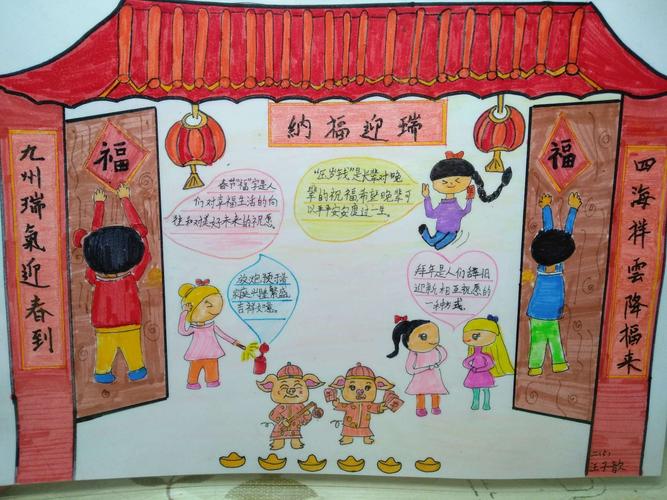 納福迎瑞
九州瑞氣迎春到
福
福
四海祥雲降福来
春节"福"字是人
们对幸福生活的向
往和对美好未来的祝愿
"压岁钱"是长辈对晚
辈的祝福希望晚辈可
以平平安安度过一生。
放炮预示着
家庭兴旺繁盛
吉祥如意。
拜年是人们辞旧
迎新相互祝愿的
一种方式。
二(5)
王子歆